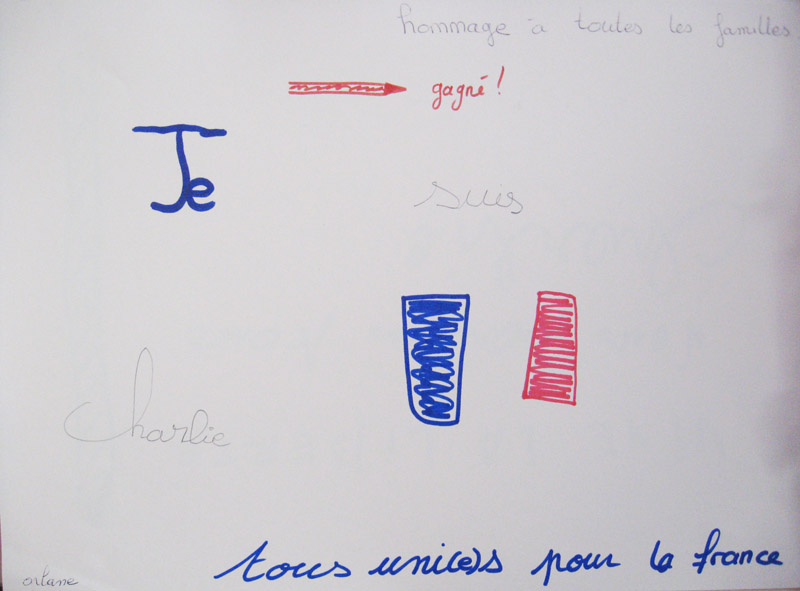 hommage à toutes les familles
gagné !
Je
suis
Charlie
tous uni(e)s pour la france